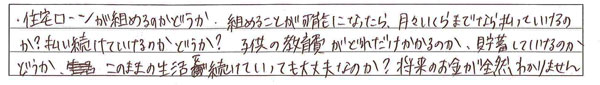 ・住宅ローンが組めるのかどうか。組めることが可能になったら、月々いくらまでなら払っていけるの
か？払い続けていけるのかどうか？ 子供の教育費がどれだけかかるのか、貯蓄していけるのか
どうか、このままの生活続けていっても大丈夫なのか？将来のお金が全然わかりません